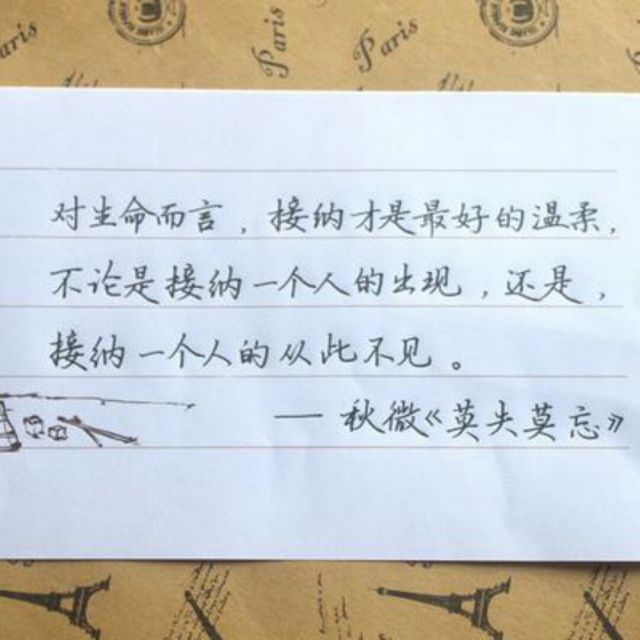 Paris
Paris
对生命而言，接纳才是最好的温柔，
不论是接纳一个人的出现，还是，
接纳一个人的从此不见。
—— 秋微《莫失莫忘》